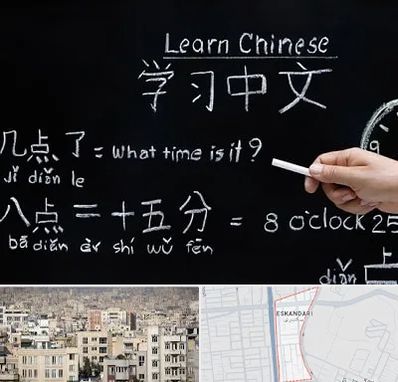 Learn Chinese
学习中文
几点了 = What time is it?
Jǐ diǎn le
八点二十五分 = 8 o'clock 25
bā diǎn èr shí wǔ fēn
diǎn
上
9
ESKANDARI